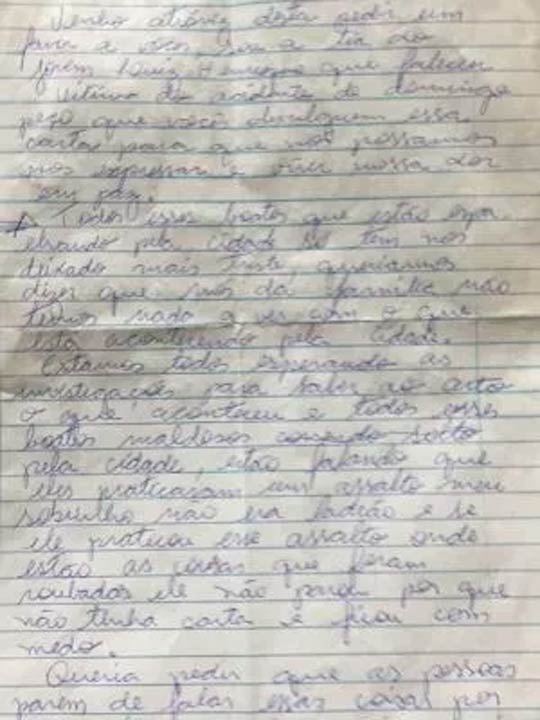 Venho atráves desta pedir um
favor a vocês sou a tia do
jovem Luiz Henrique que faleceu
vitima do acidente de domingo
peço que vocês divulguem essa
carta para que nos possamos
nos expressar e viver nossa dor
em paz.
Todos esses boatos que estão espa
lhando pela cidade só tem nos
deixado mais triste, queriamos
dizer que nos da familia não
temos nada a ver com o que
está acontecendo pela cidade.
Estamos todos esperando as
investigações para saber ao certo
o que aconteceu e todos esses
boatos maldosos correndo solto
pela cidade, estão falando que
eles praticaram um assalto meu
sobrinho não era ladrão e se
ele praticou esse assalto onde
estão as coisas que foram
roubadas ele não parou por que
não tinha carta e ficou com
medo.
Queria pedir que as pessoas
parem de falar essas coisas por